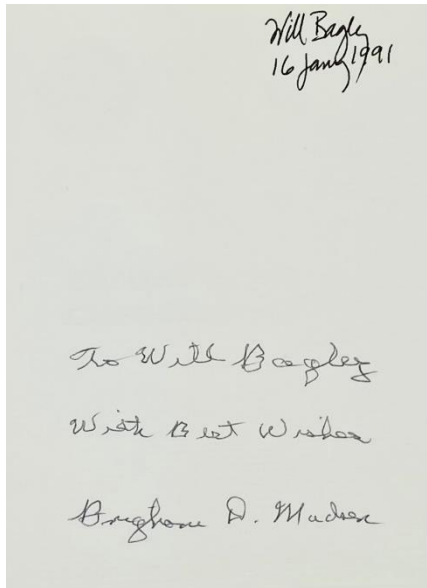 Will Bagley
16 Jany 1991
To Will Bagley
With Best Wishes
Brigham D. Madsen